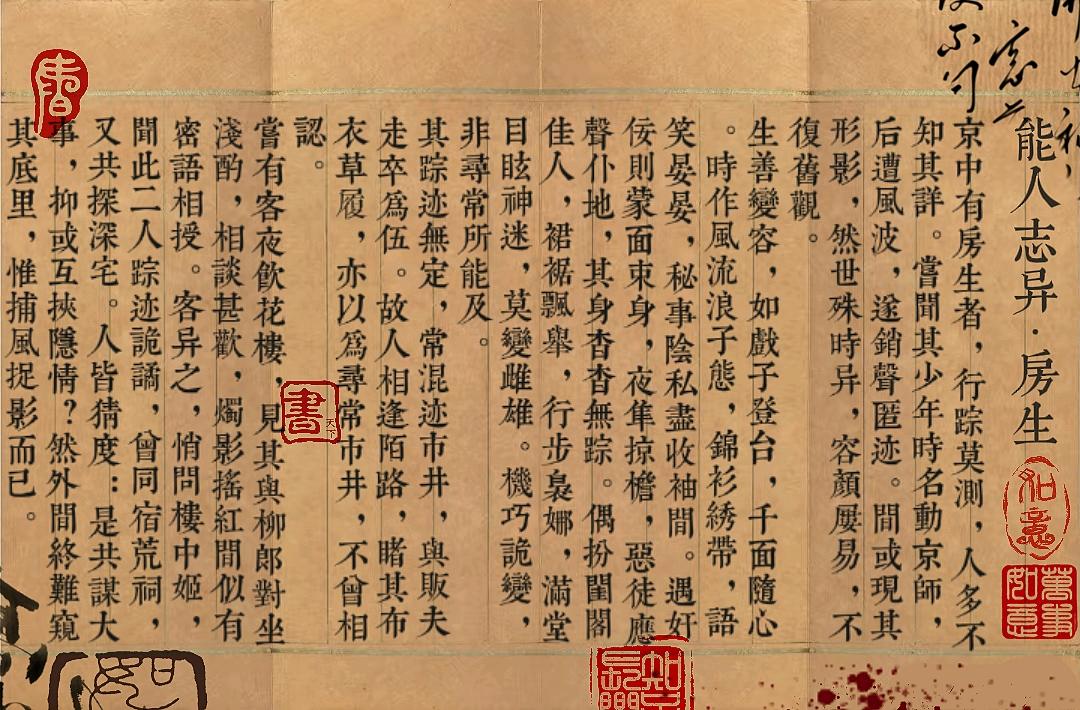 能人志异·房生
京中有房生者，行踪莫測，人多不
知其詳。嘗聞其少年時名動京師，
后遭風波，遂銷聲匿迹。間或現其
形影，然世殊時异，容顏屢易，不
復舊觀。
生善變容，如戲子登台，千面隨心
。時作風流浪子態，錦衫綉帶，語
笑晏晏，秘事陰私盡收袖間。遇奸
佞則蒙面束身，夜隼掠檐，惡徒應
聲仆地，其身杳杳無踪。偶扮閨閣
佳人，裙裾飄舉，行步裊娜，滿堂
目眩神迷，莫變雌雄。機巧詭變，
非尋常所能及。
其踪迹無定，常混迹市井，與販夫
走卒爲伍。故人相逢陌路，睹其布
衣草履，亦以爲尋常市井，不曾相
認。
嘗有客夜飲花樓，見其與柳郎對坐
淺酌，相談甚歡，燭影搖紅間似有
密語相授。客异之，悄問樓中姬，
聞此二人踪迹詭譎，曾同宿荒祠，
又共探深宅。人皆猜度：是共謀大
事，抑或互挾隱情？然外間終難窺
其底里，惟捕風捉影而已。
如意
萬事
如意
書
天下